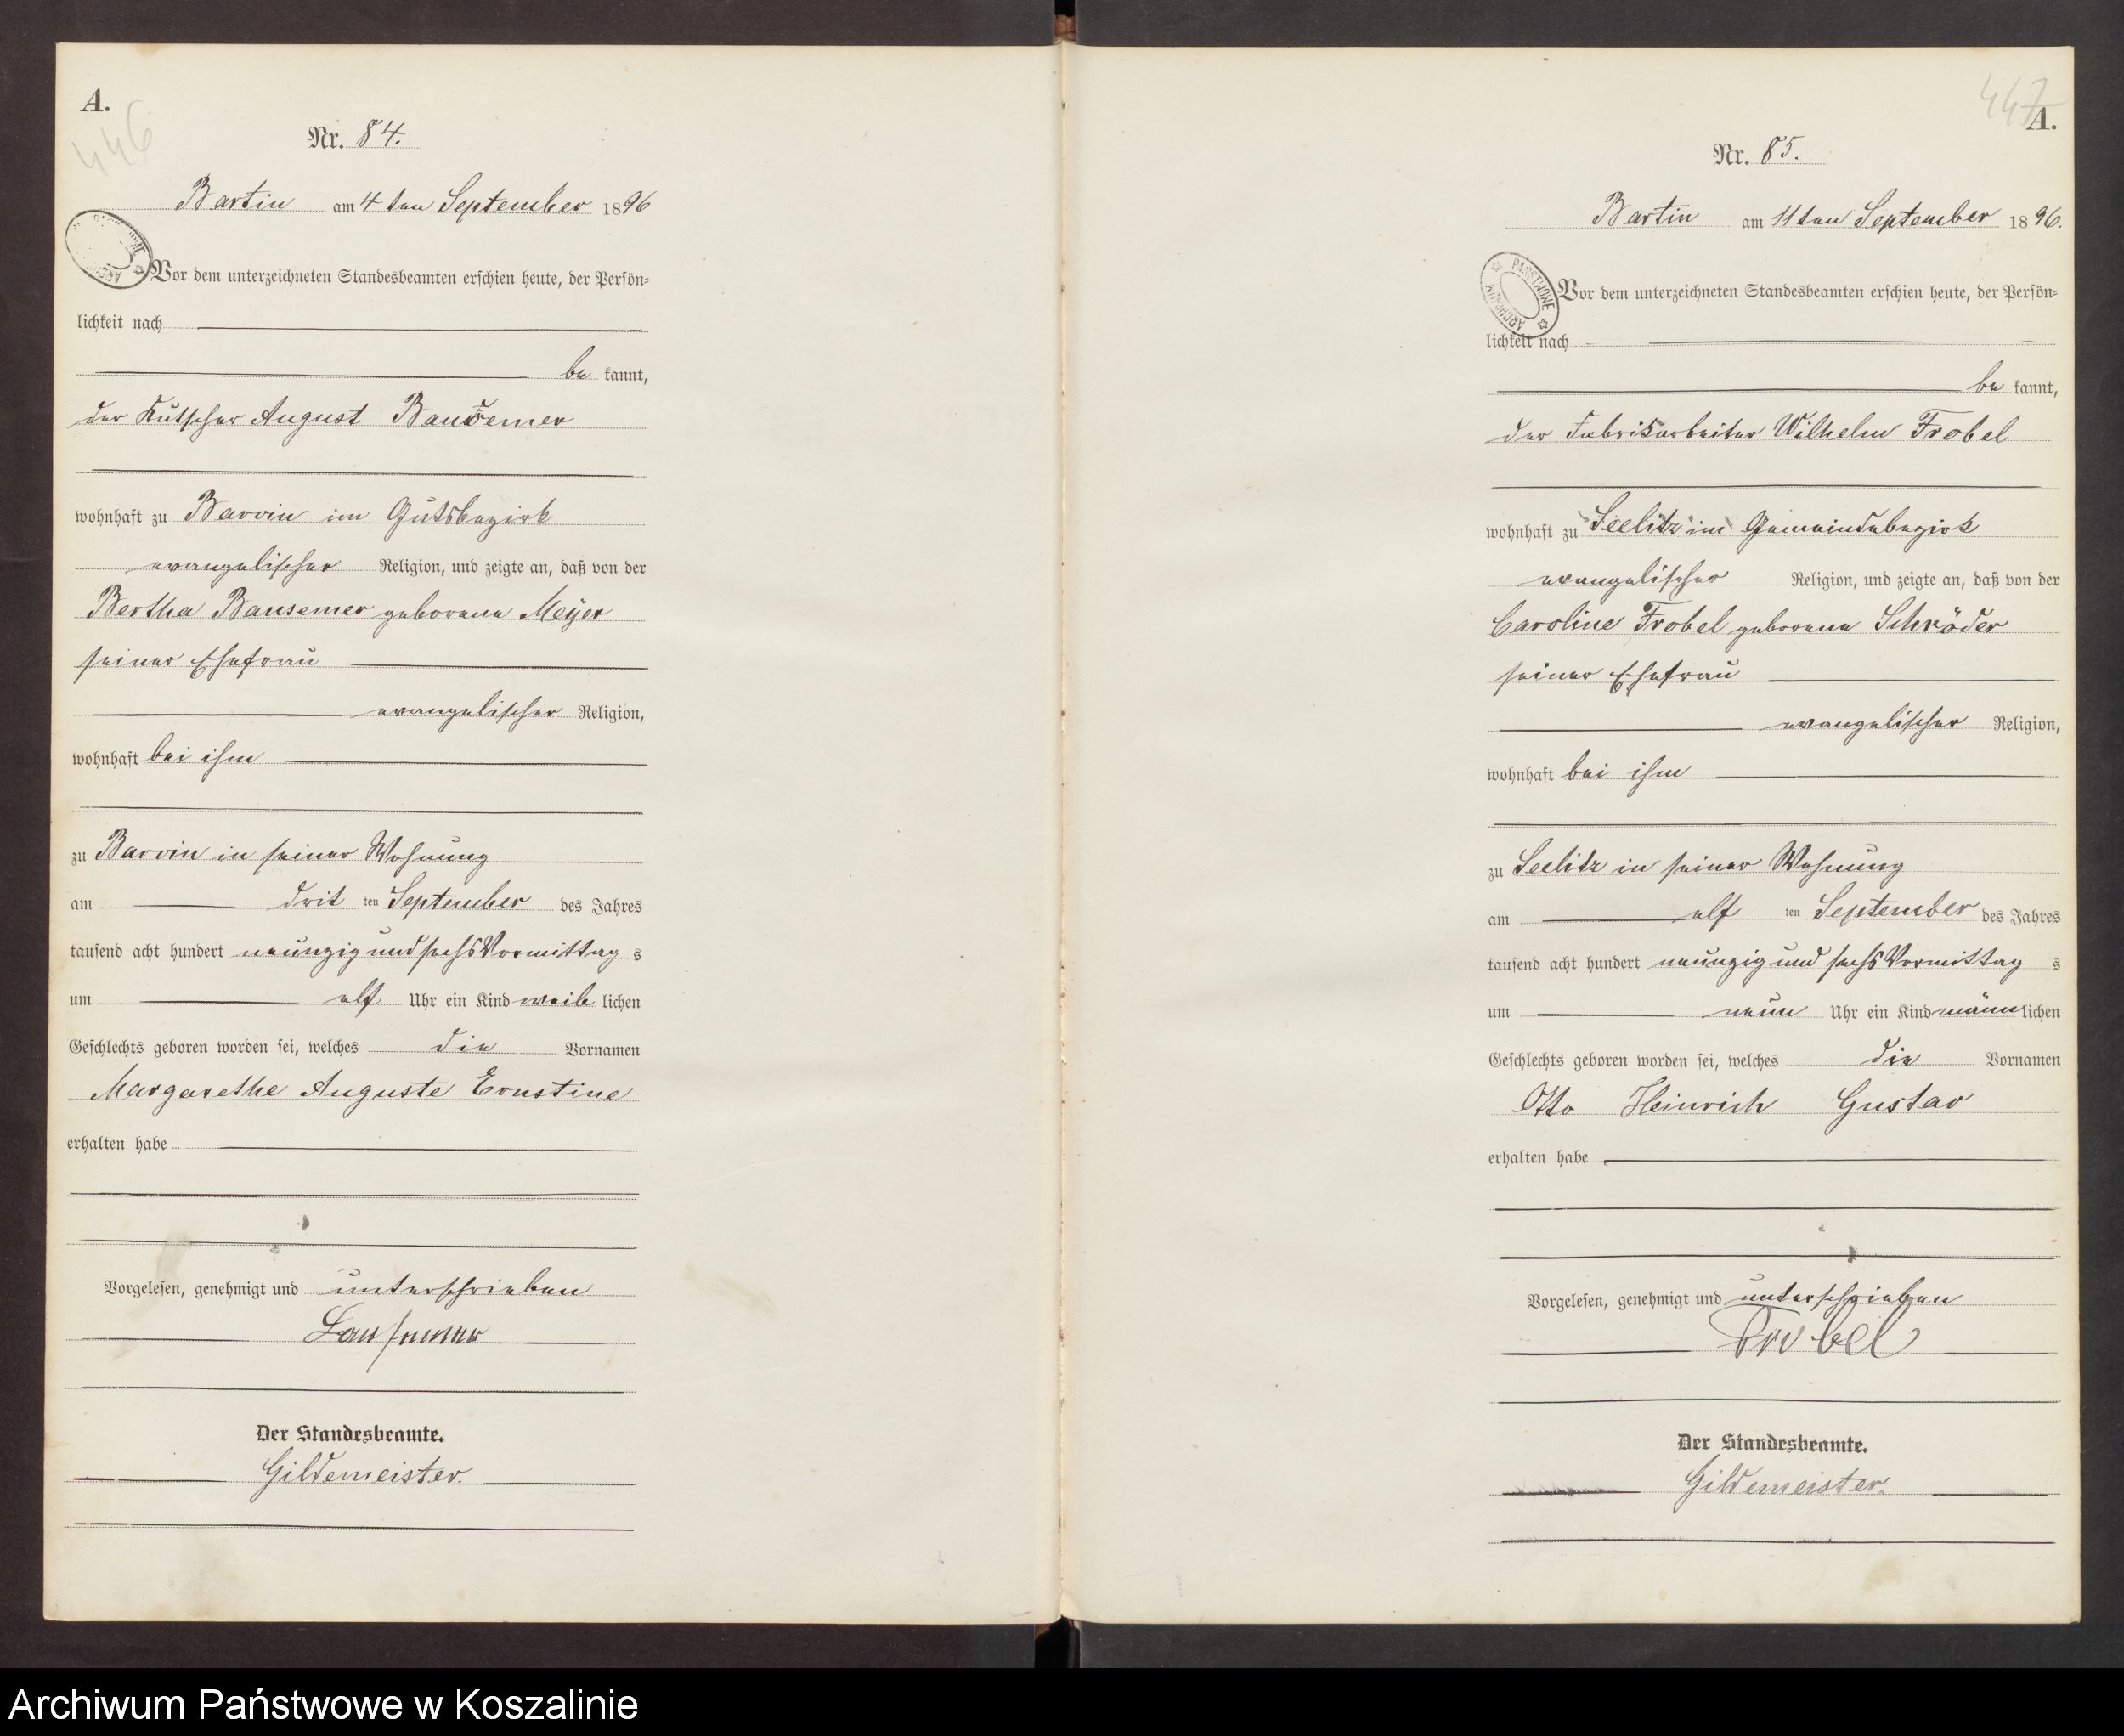 A.
446
Nr. 84.
Bartin am 4ten September 1896
Vor dem unterzeichneten Standesbeamten erschien heute, der Persön-
lichkeit nach
be kannt,
der Kutscher August Bausemer
wohnhaft zu Barvin im Gutsbezirk
evangelischer Religion, und zeigte an, daß von der
Bertha Bausemer geborene Meÿer
seiner Ehefrau
evangelischer Religion,
wohnhaft bei ihm
zu Barvin in seiner Wohnung
am drit ten September des Jahres
tausend acht hundert neunzig und sechs Vormittag s
um elf Uhr ein Kind weib lichen
Geschlechts geboren worden sei, welches die Vornamen
Margarethe Auguste Ernstine
erhalten habe
Vorgelesen, genehmigt und unterschrieben
Bausemer
Der Standesbeamte.
Gildemeister.
447
A.
Nr. 85.
Bartin am 11ten September 1896.
PAŃSTWOWE ARCHIWUM
Vor dem unterzeichneten Standesbeamten erschien heute, der Persön-
lichkeit nach
be kannt,
der Fabrikarbeiter Wilhelm Frobel
wohnhaft zu Seelitz im Gemeindebezirk
evangelischer Religion, und zeigte an, daß von der
Caroline Frobel geborene Schröder
seiner Ehefrau
evangelischer Religion,
wohnhaft bei ihm
zu Seelitz in seiner Wohnung
am elf ten September des Jahres
tausend acht hundert neunzig und sechs Vormittag s
um neun Uhr ein Kind männlichen
Geschlechts geboren worden sei, welches die Vornamen
Otto Heinrich Gustav
erhalten habe
Vorgelesen, genehmigt und unterschrieben
Frobel
Der Standesbeamte.
Gildemeister.
Archiwum Państwowe w Koszalinie